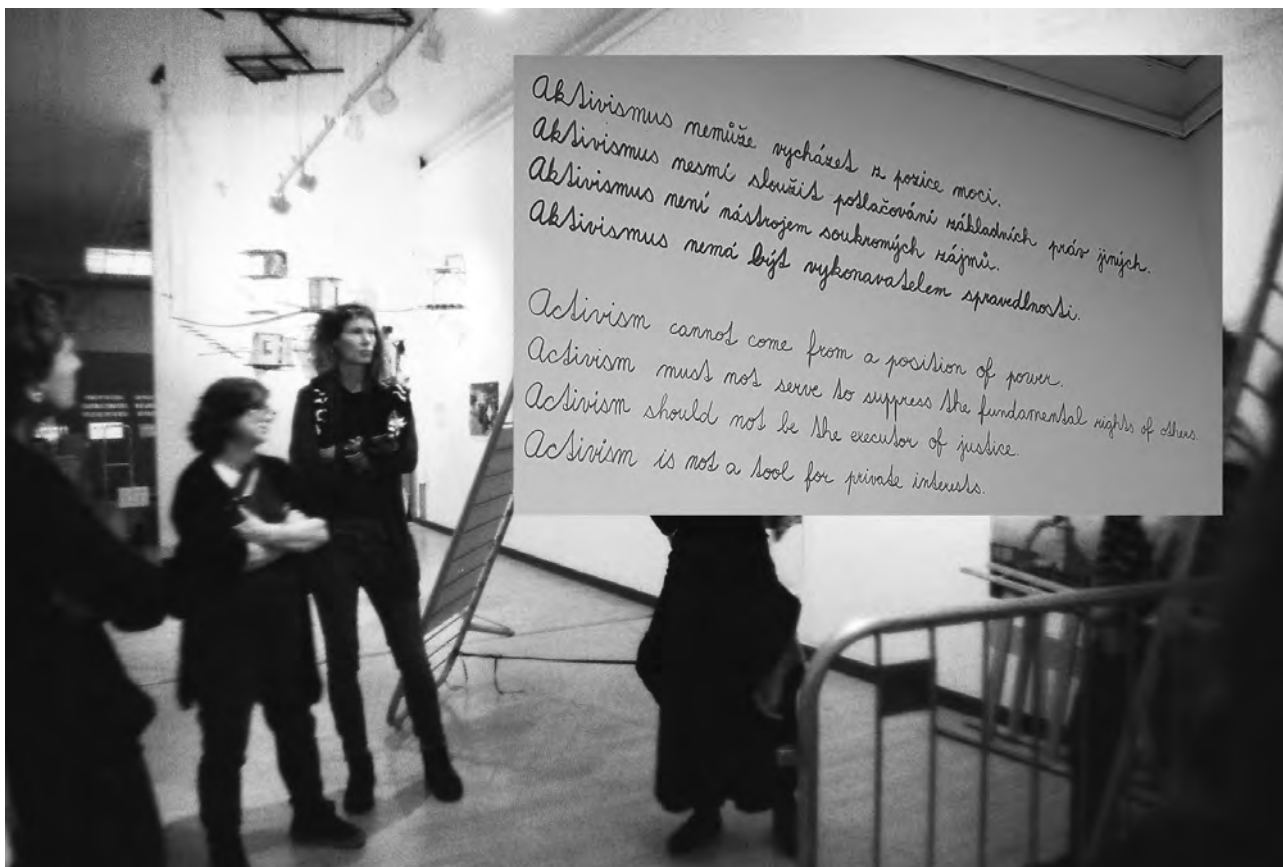 Aktivismus nemůže vycházet z pozice moci.
Aktivismus nesmí sloužit potlačování základních práv jiných.
Aktivismus není nástrojem soukromých zájmů.
Aktivismus nemá být vykonavatelem spravedlnosti.
Activism cannot come from a position of power.
Activism must not serve to suppress the fundamental rights of others.
Activism should not be the executor of justice.
Activism is not a tool for private interests.